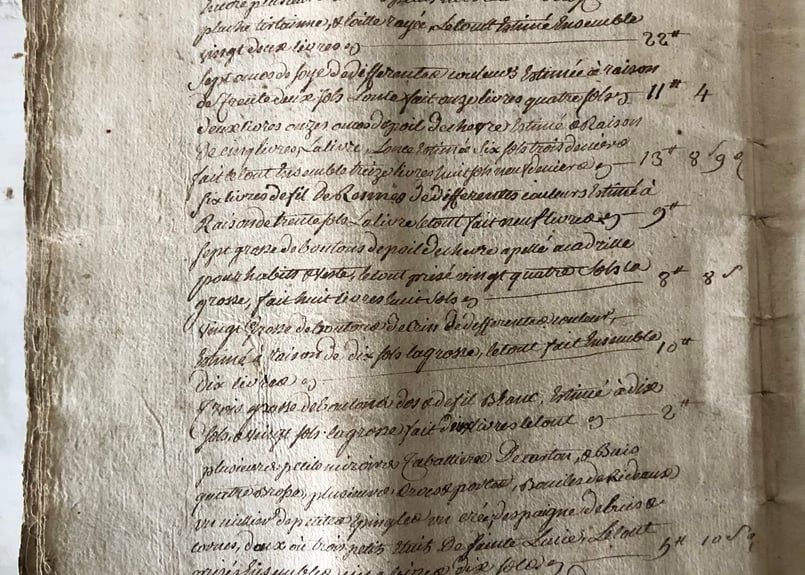 pluche tortanne, & toille rayée, Le tout Estimé Ensemble
vingt deux livres cy 22 ₶
Sept onces de soye de differentes couleurs Estimée à raison
de Trente deux sols L'once fait onze livres quatre sols cy 11 ₶ 4
deux livres onze onces de poil de chevre Estimé a Raison
de cinq livres La livre, L'once Estimée Six sols trois deniers
fait le tout Ensemble treize livres huit sols neuf deniers cy 13 ₶ 8 s 9 d
Six livres de fil de Rennes de differentes couleurs Estimé à
Raison de trente sols La livre le tout fait neuf livres cy 9 ₶
Sept grosse de boutons de poil de chevre apellé
pour habits & veste, le tout prisé vingt quatre Sols la
grosse, fait huit livres huit sols cy 8 ₶ 8 s
vingt Grosse de boutons de Crin de differentes couleur,
Estimé à Raison de dix sols la grosse, le tout fait Ensemble
Dix livres cy 10 ₶
Trois grosse de boutons d'os & de fil Blanc, Estimé à dix
sols & vingt sols la grosse fait deux livres le tout cy 2 ₶
plusieurs petits miroirs Tabattiere De carton, & Buis
quatre plusieurs portes, Boucles de Rideaux
un millier de petites Epingles un d'espagne de buis &
cornes, deux ou trois petits Etuit De Sainte Lucie, Le tout
prisé Ensemble cinq livres dix sols cy 5 ₶ 10 s